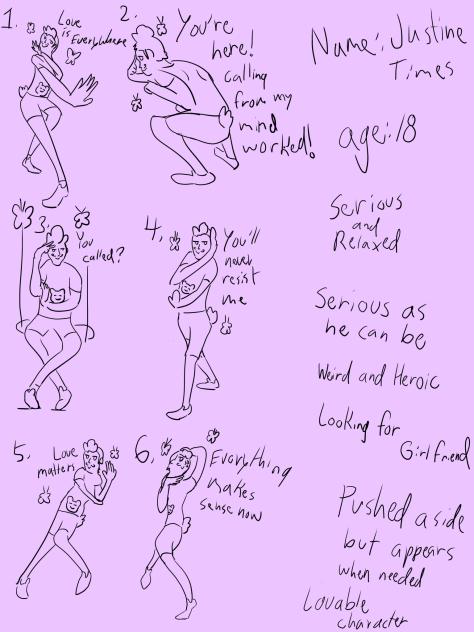 1.
Love
is Everywhere
2.
You're
here!
calling
from my
mind
worked!
3.
You
called?
4.
You'll
never
resist
me
5.
Love
matters
6.
Everything
makes
sense now
Name: Justine
Times
age: 18
Serious
and
Relaxed
Serious as
he can be
Weird and Heroic
Looking for
Girlfriend
Pushed aside
but appears
when needed
Lovable
character